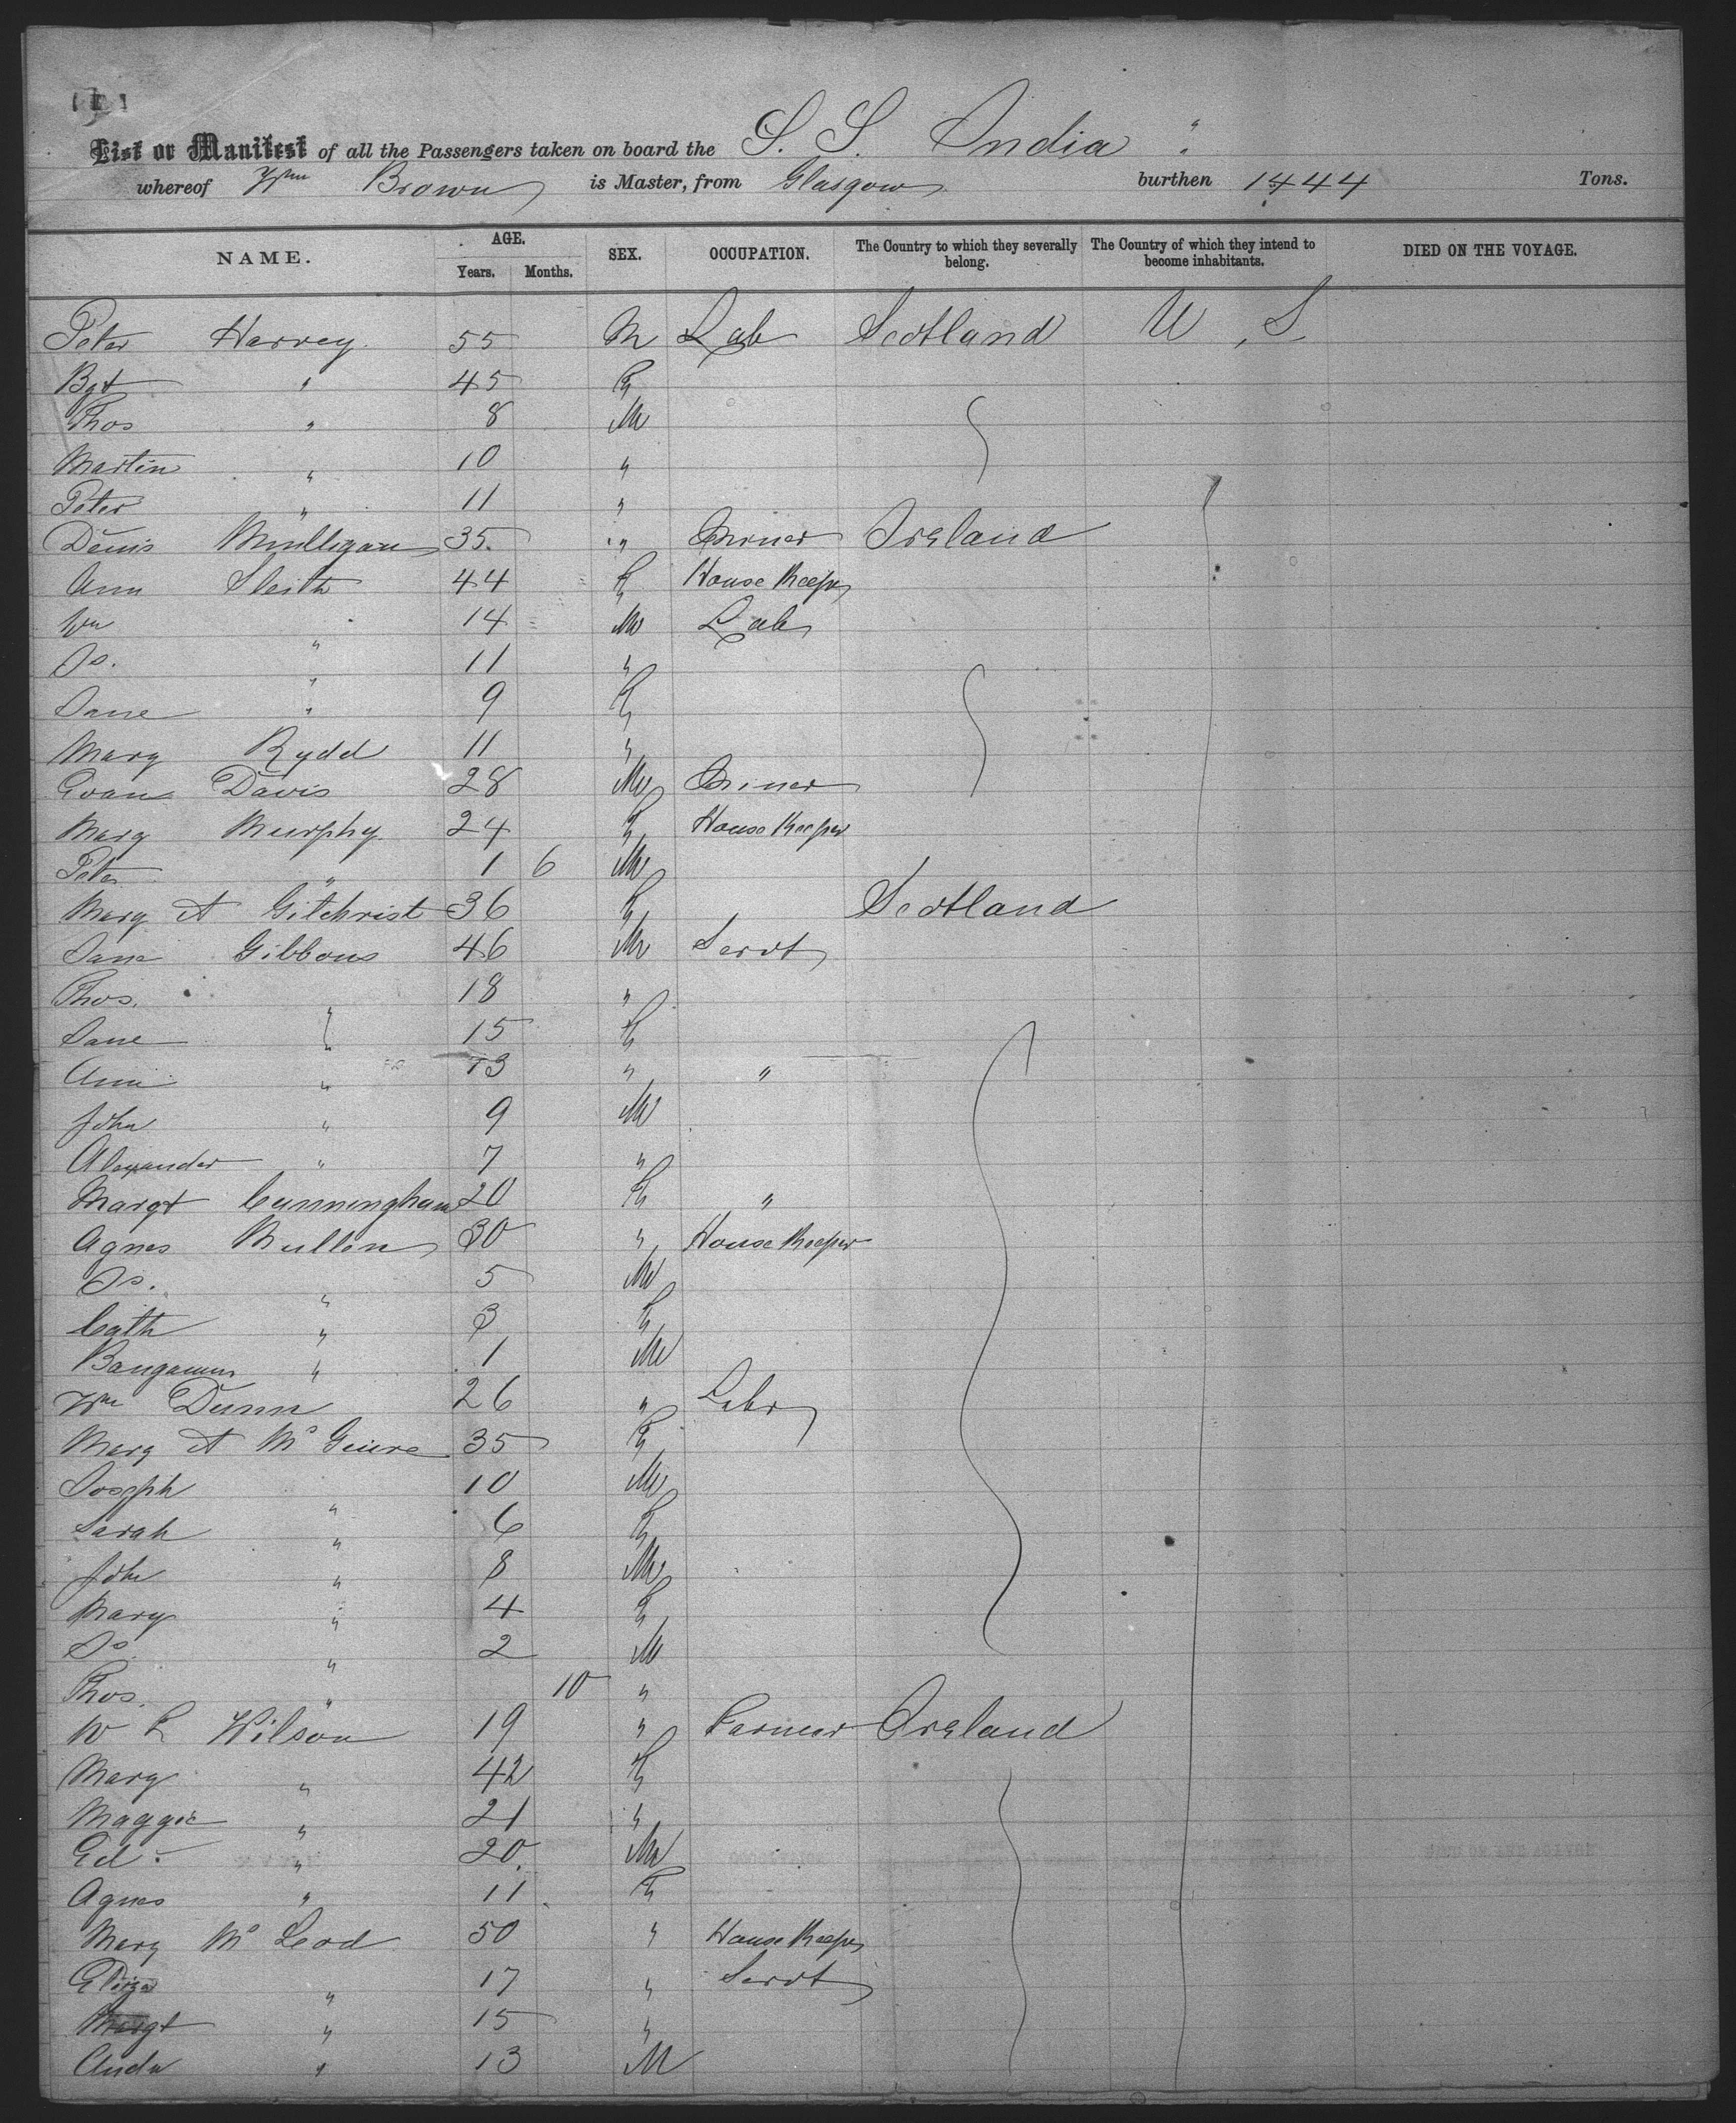 List or Manifest of all the Passengers taken on board the S. S. India "
whereof Wm Brown is Master, from Glasgow burthen 1444 Tons.
NAME. AGE. Years. Months. SEX. OCCUPATION. The Country to which they severally belong. The Country of which they intend to become inhabitants. DIED ON THE VOYAGE.
Peter Harvey 55 M Lab Scotland U. S.
Bgt " 45 F
Thos " 8 M
Martin " 10 "
Peter " 11 "
Denis Mulligan 35 " Miner Ireland
Ann Sleith 44 F House Keeper
Wm " 14 M Lab
Js. " 11 "
Jane " 9 F
Mary Rydd 11 "
Evan Davis 28 M Miner
Mary Murphy 24 F House Keeper
Peter " 1 6 M
Mary A Gilchrist 36 F Scotland
Jane Gibbons 46 M Servt
Thos. " 18 "
Jane " 15 F
Ann " 13 " "
John " 9 M
Alexander " 7 "
Margt Cunningham 20 F "
Agnes Mullen 30 " House Keeper
Js. " 5 M
Cath " 3 F
" 1 M
Wm Dunn 26 " Labr
Mary A McGuire 35 F
Joseph " 10 M
Sarah " 6 F
John " 8 M
Mary " 4 F
Js " 2 M
Thos. " 10 "
W R Wilson 19 " Farmer Ireland
Mary " 42 F
Maggie " 21 "
Ed. " 20 M
Agnes " 11 F
Mary McLeod 50 " House Keeper
Eliza " 17 " Servt
Margt " 15 "
Andw " 13 M